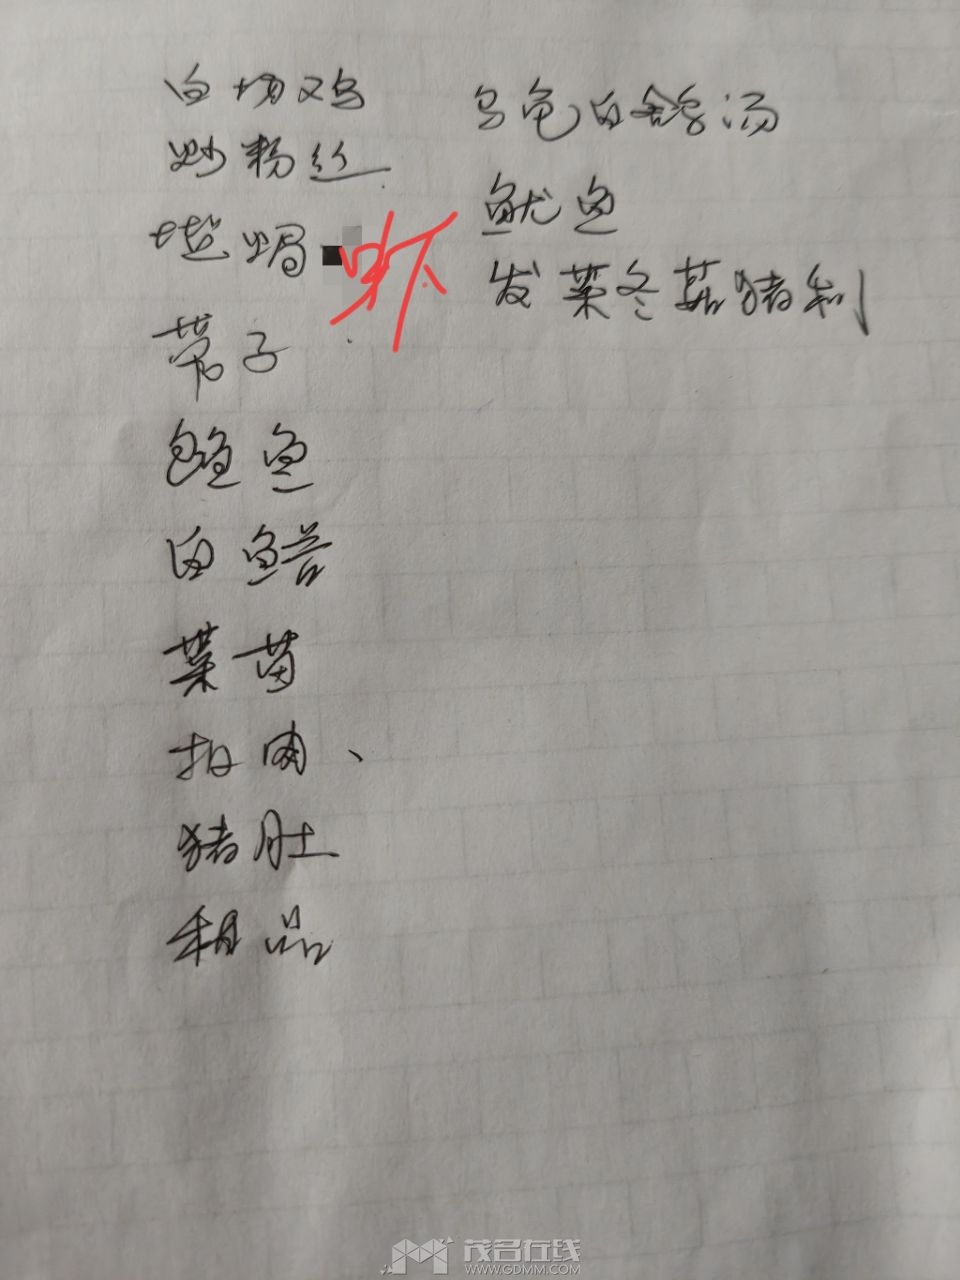 白切鸡
炒粉丝
盐焗虾
带子
鲍鱼
白鳝
菜苗
扣肉、
猪肚
粗品
乌龟白鸽汤
鱿鱼
发菜冬菇猪利
茂名在线
WWW.GDMM.COM